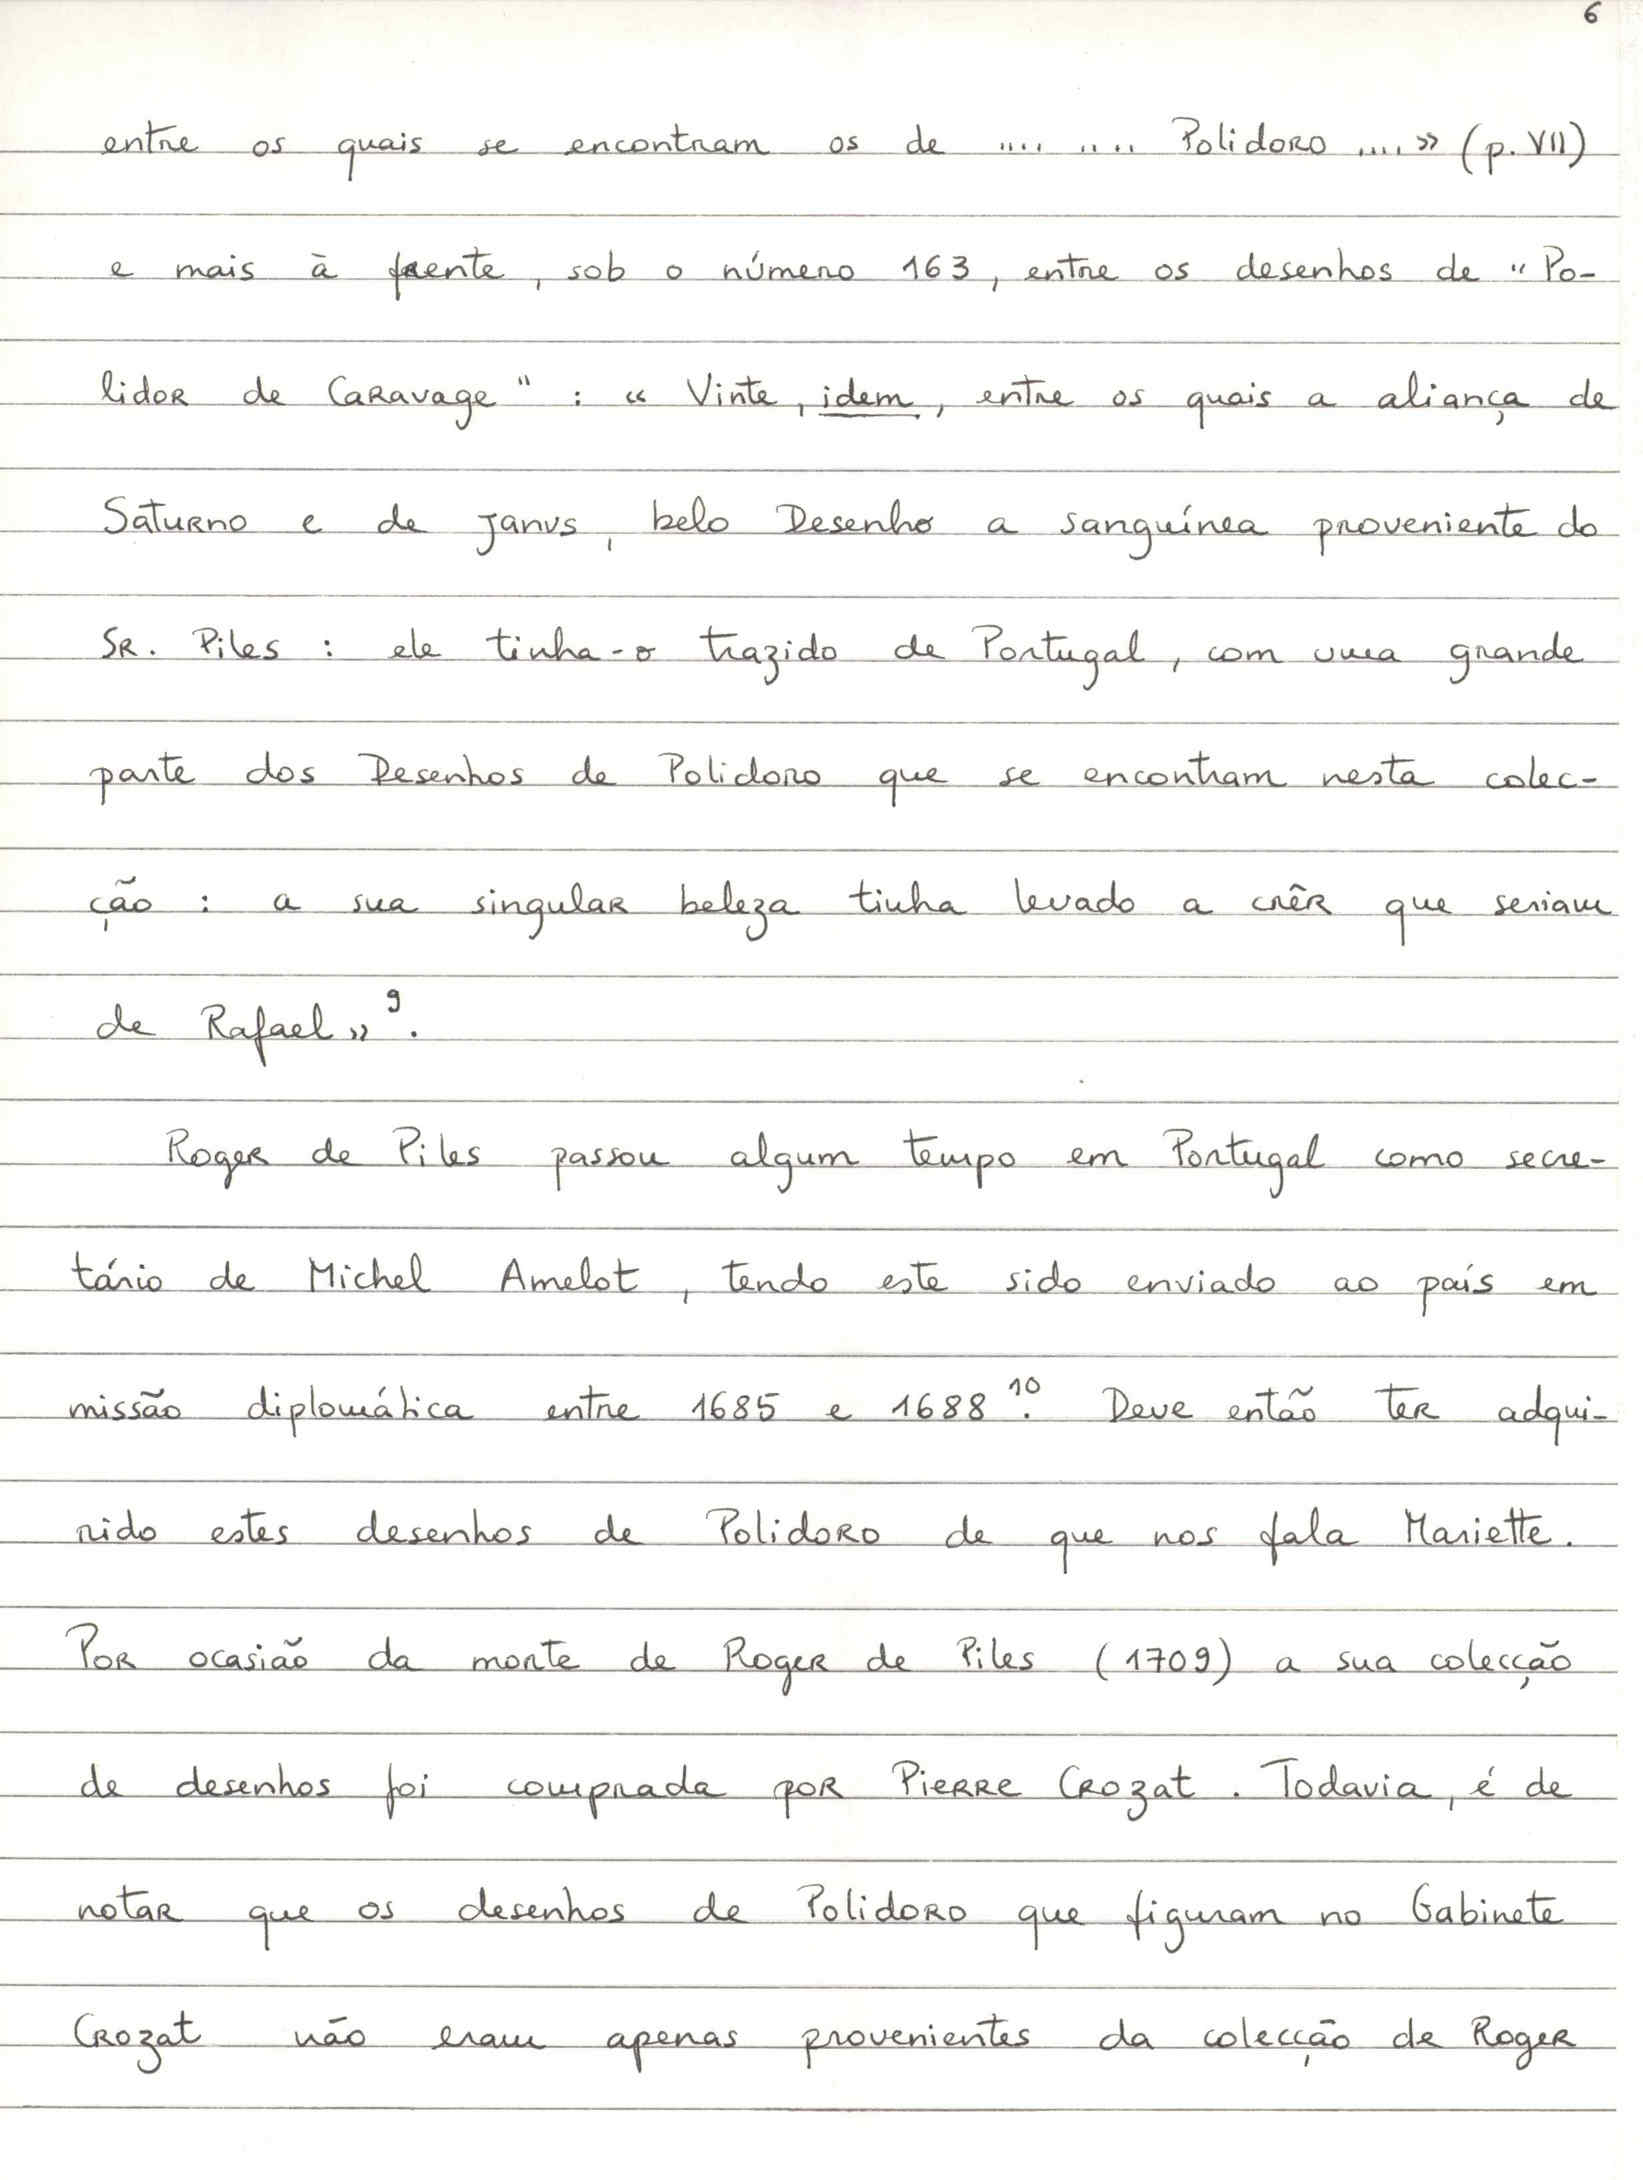 6
entre os quais se encontram os de .... .... Polidoro ....» (p. VII)
e mais à frente, sob o número 163, entre os desenhos de "Po-
lidor de Caravage" : « Vinte, idem, entre os quais a aliança de
Saturno e de Janus, belo Desenho a sanguínea proveniente do
Sr. Piles : ele tinha-o trazido de Portugal, com uma grande
parte dos Desenhos de Polidoro que se encontram nesta colec-
ção : a sua singular beleza tinha levado a crêr que seriam
de Rafael»⁹.
Roger de Piles passou algum tempo em Portugal como secre-
tário de Michel Amelot, tendo este sido enviado ao país em
missão diplomática entre 1685 e 1688¹⁰. Deve então ter adqui-
rido estes desenhos de Polidoro de que nos fala Mariette.
Por ocasião da morte de Roger de Piles (1709) a sua colecção
de desenhos foi comprada por Pierre Crozat. Todavia, é de
notar que os desenhos de Polidoro que figuram no Gabinete
Crozat não eram apenas provenientes da colecção de Roger